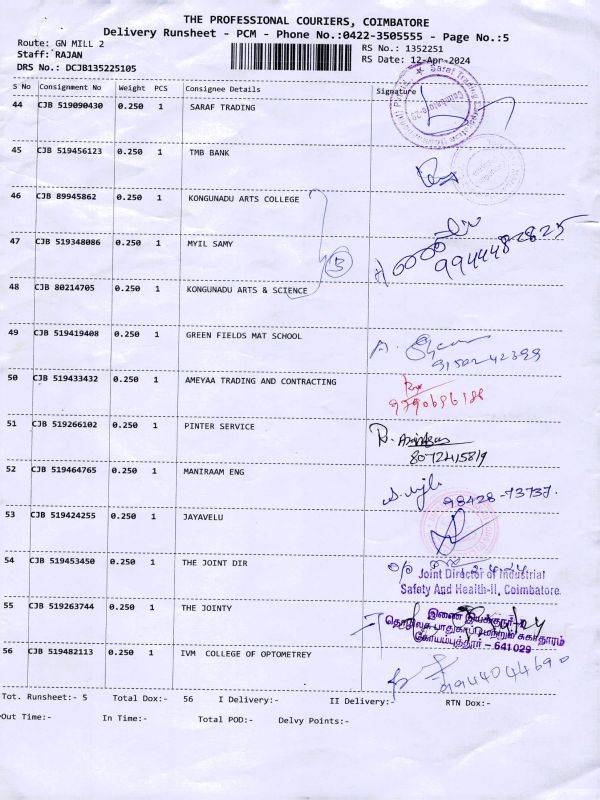 THE PROFESSIONAL COURIERS, COIMBATORE
Delivery Runsheet - PCM - Phone No.:0422-3505555 - Page No.:5
Route: GN MILL 2 RS No.: 1352251
Staff: RAJAN RS Date: 12-Apr-2024
DRS No.: DCJB135225105
S No Consignment No Weight PCS Consignee Details Signature
44 CJB 519090430 0.250 1 SARAF TRADING
45 CJB 519456123 0.250 1 TMB BANK
46 CJB 89945862 0.250 1 KONGUNADU ARTS COLLEGE
47 CJB 519348086 0.250 1 MYIL SAMY
9944482825
3
48 CJB 80214705 0.250 1 KONGUNADU ARTS & SCIENCE
49 CJB 519419408 0.250 1 GREEN FIELDS MAT SCHOOL
50 CJB 519433432 0.250 1 AMEYAA TRADING AND CONTRACTING
9790696186
51 CJB 519266102 0.250 1 PINTER SERVICE
8072415819
52 CJB 519464765 0.250 1 MANIRAAM ENG
98428-73737.
53 CJB 519424255 0.250 1 JAYAVELU
54 CJB 519453450 0.250 1 THE JOINT DIR
Joint Director of Industrial
Safety And Health-II, Coimbatore.
55 CJB 519263744 0.250 1 THE JOINTY
இணை இயக்குநர்-2
தொழிலக பாதுகாப்பு மற்றும் சுகாதாரம்
கோயம்புத்தூர் - 641029
56 CJB 519482113 0.250 1 IVM COLLEGE OF OPTOMETREY
9944044690
Tot. Runsheet:- 5 Total Dox:- 56 I Delivery:- II Delivery:- RTN Dox:-
Out Time:- In Time:- Total POD:- Delvy Points:-